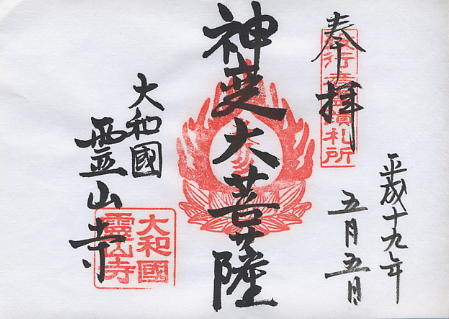 奉拝
平成十九年
五月五日
神変大菩薩
大和國
霊山寺
大和國
靈山寺
札所